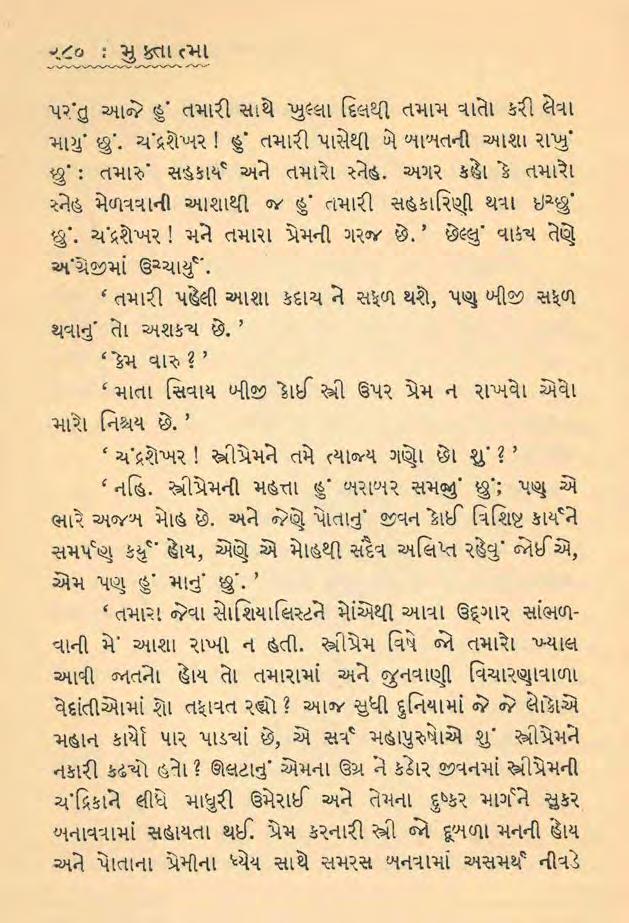 ૨૮૦ : મુક્તાત્મા
પરંતુ આજે હું તમારી સાથે ખુલ્લા દિલથી તમામ વાતો કરી લેવા
માગું છું. ચંદ્રશેખર ! હું તમારી પાસેથી બે બાબતની આશા રાખું
છું : તમારું સહકાર્ય અને તમારો સ્નેહ. અગર કહો કે તમારો
સ્નેહ મેળવવાની આશાથી જ હું તમારી સહકારિણી થવા ઇચ્છું
છું. ચંદ્રશેખર ! મને તમારા પ્રેમની ગરજ છે.’ છેલ્લું વાક્ય તેણે
અંગ્રેજીમાં ઉચ્ચાર્યું.
‘ તમારી પહેલી આશા કદાચ ને સફળ થશે, પણ બીજી સફળ
થવાનું તો અશક્ય છે.’
‘ કેમ વારુ ? ’
‘ માતા સિવાય બીજી કોઈ સ્ત્રી ઉપર પ્રેમ ન રાખવો એવો
મારો નિશ્ચય છે.’
‘ ચંદ્રશેખર ! સ્ત્રીપ્રેમને તમે ત્યાજ્ય ગણો છો શું ? ’
‘ નહિ. સ્ત્રીપ્રેમની મહત્તા હું બરાબર સમજું છું; પણ એ
ભારે અજબ મોહ છે. અને જેણે પોતાનું જીવન કોઈ વિશિષ્ટ કાર્યને
સમર્પણ કર્યું હોય, એણે એ મોહથી સદૈવ અલિપ્ત રહેવું જોઈએ,
એમ પણ હું માનું છું.’
‘ તમારા જેવા સોશિયાલિસ્ટને મોંએથી આવા ઉદ્ગાર સાંભળ-
વાની મેં આશા રાખી ન હતી. સ્ત્રીપ્રેમ વિષે જો તમારો ખ્યાલ
આવી જાતનો હોય તો તમારામાં અને જુનવાણી વિચારણાવાળા
વેદાંતીઓમાં શો તફાવત રહ્યો ? આજ સુધી દુનિયામાં જે જે લોકોએ
મહાન કાર્યો પાર પાડ્યાં છે, એ સર્વ મહાપુરુષોએ શું સ્ત્રીપ્રેમને
નકારી કઢ્યો હતો ? ઊલટાનું એમના ઉગ્ર ને કઠોર જીવનમાં સ્ત્રીપ્રેમની
ચંદ્રિકાને લીધે માધુરી ઉમેરાઈ અને તેમના દુષ્કર માર્ગને સુકર
બનાવવામાં સહાયતા થઈ. પ્રેમ કરનારી સ્ત્રી જો દૂબળા મનની હોય
અને પોતાના પ્રેમીના ધ્યેય સાથે સમરસ બનવામાં અસમર્થ નીવડે